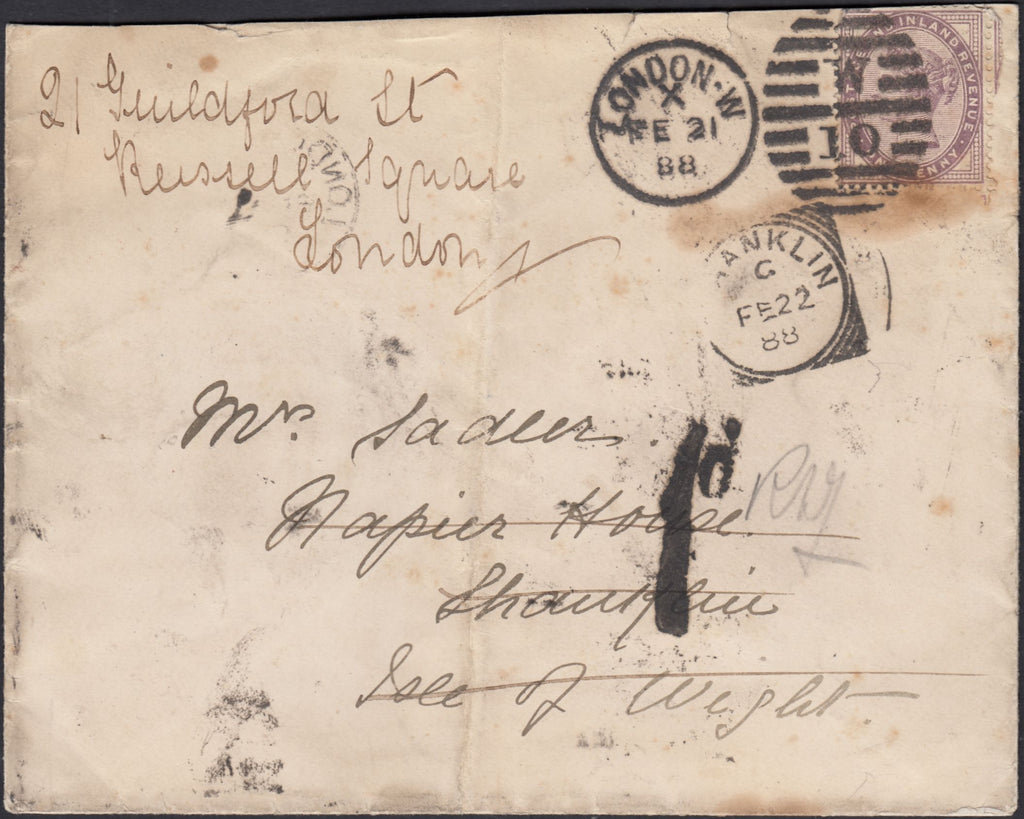 21 Guildford St
Russell Square
London
LONDON·W
X
FE 21
88
W
10
AND INLAND REVENUE
ANKLIN
G
FE 22
88
Mrs. Sadler
Napier House
Shanklin
Isle of Wight.